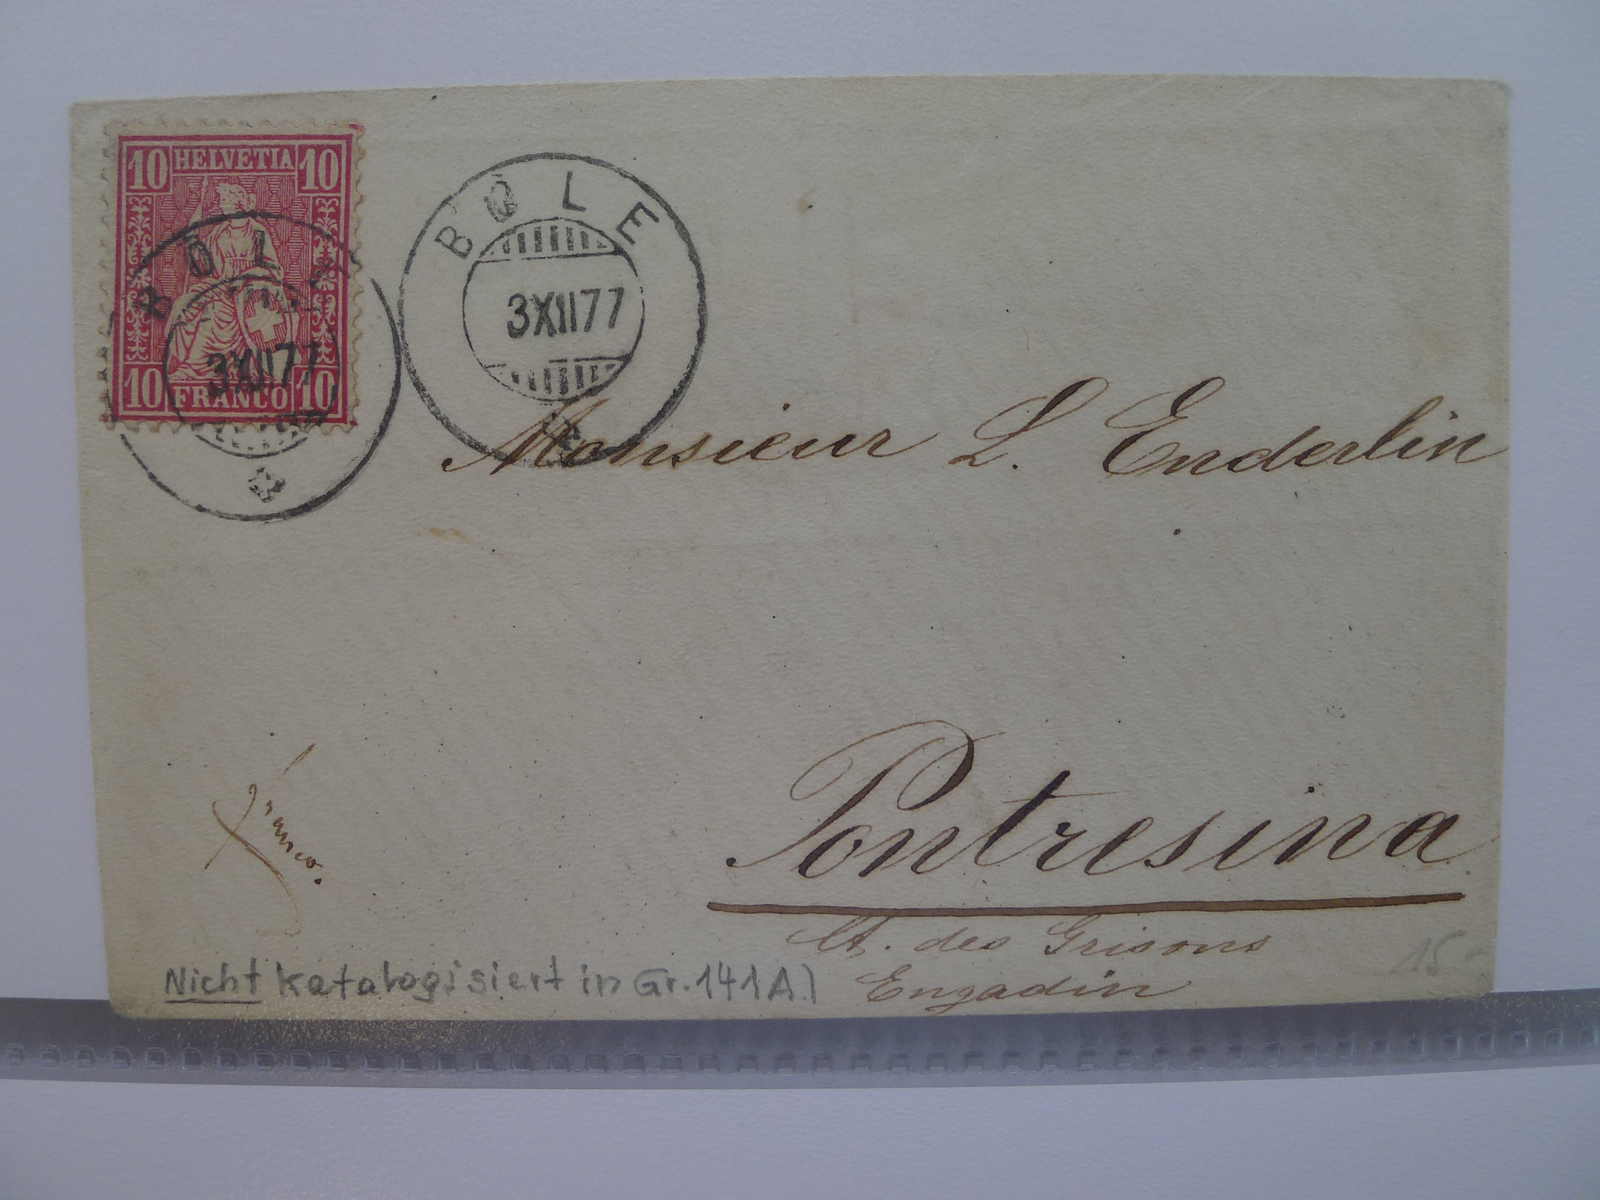 10 HELVETIA 10
10 FRANCO 10
BÔLE
3XII77
BÔLE
3XII77
Monsieur L. Enderlin
Pontresina
Ct. des Grisons
Engadin
franco.
Nicht katalogisiert in Gr. 141A)
15-